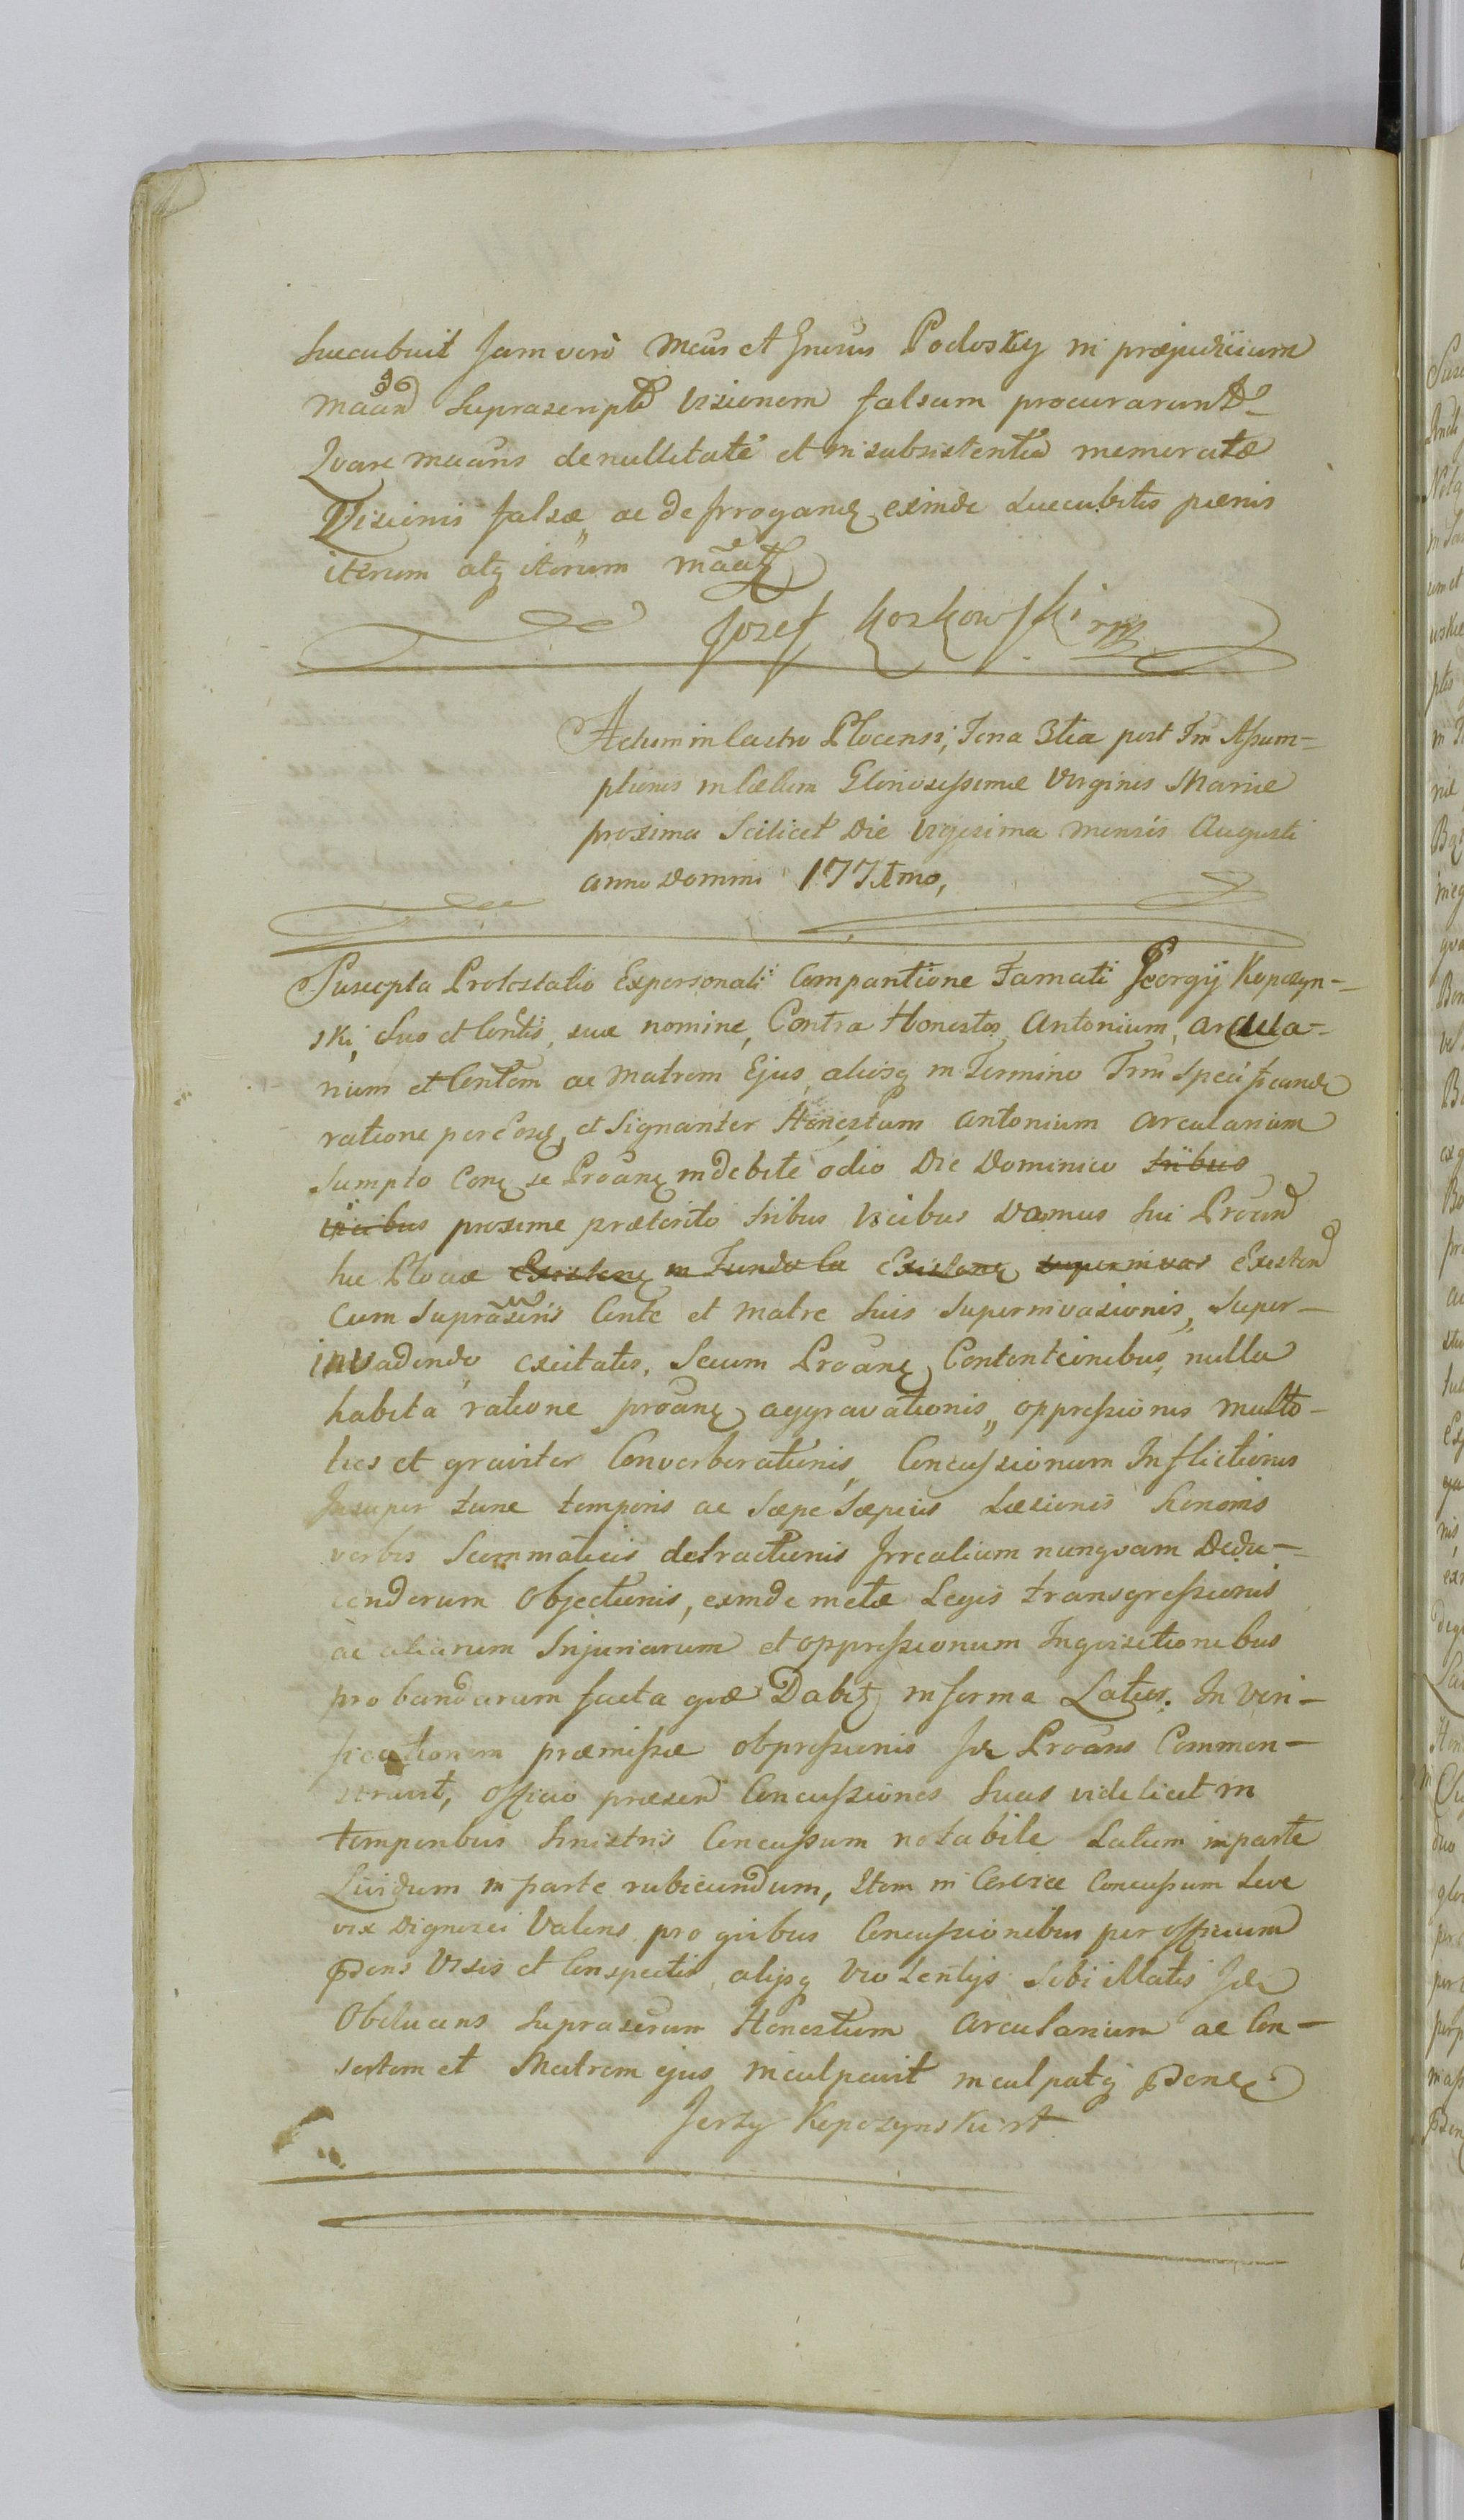 Succubuit Jam vero Mcus et Gnrosus Podosky in præjudicium
Suprascript Visionem falsam procurarunt
Qvare de nullitate et insubsistentia memoratæ
Visionis falsæ, ac de irrogand exinde Luccubitis pænis
iterum atq iterum
Jozef Koskowski mp
Actum in Castro Plocensi, Feria 3tia post Fm Assum-
ptionis in Cælum Gloriosissimæ Virginis Mariæ
proxima Scilicet Die Vigesima mensis Augusti
Anno Domini
Suscepta Protestatio Expersonali Comparitione Famati Georgij Kopczyn-
ski, Suo et Contis, suæ nomine, Contra Honestos Antonium, Arcula-
rium et Contem ac Matrem Ejus, aliosq in Termino
ratione et Signanter Honestum Antonium Arcularium
Sumpto se indebite odio Die Dominico tribus
vicibus proxime præterito tribus Vicibus Domus Sui
hic Plociæ
Cum Conte et Matre Suis Superinvasionis, Super-
invadendo excitatis, Secum Contentionibus, nulla
habita ratione aggravationis, oppressionis multo-
ties et graviter Converberationis, Concussionum Inflictionis
Insuper tunc temporis ac Sæpe Sæpius Læsionis honoris
verbis Scommaticis detractionis Irrealium nunqvam Dedu-
cendorum Objectionis, exinde metæ Legis transgressionis
ac aliarum Injuriarum et oppressionum Inqvisitionibus
probandarum facta qvæ Dabit in forma Latius. In Veri-
ficationem præmissæ obpressionis Commen-
stravit, officio præsen Concussiones Suas videlicet in
temporibus Sinistris Concussum notabile Latum in parte
Lividum in parte rubicundum, Item in Cervice Concussum Leve
vix Dignosci Valens, pro qvibus Concussionibus per officium
Visis et Conspectis, alijsq Violentijs Sibi illatis
Obducens Honestum Arcularium ac Con-
sortem et Matrem ejus inculpavit inculpatq
Jerzy Kopczynski